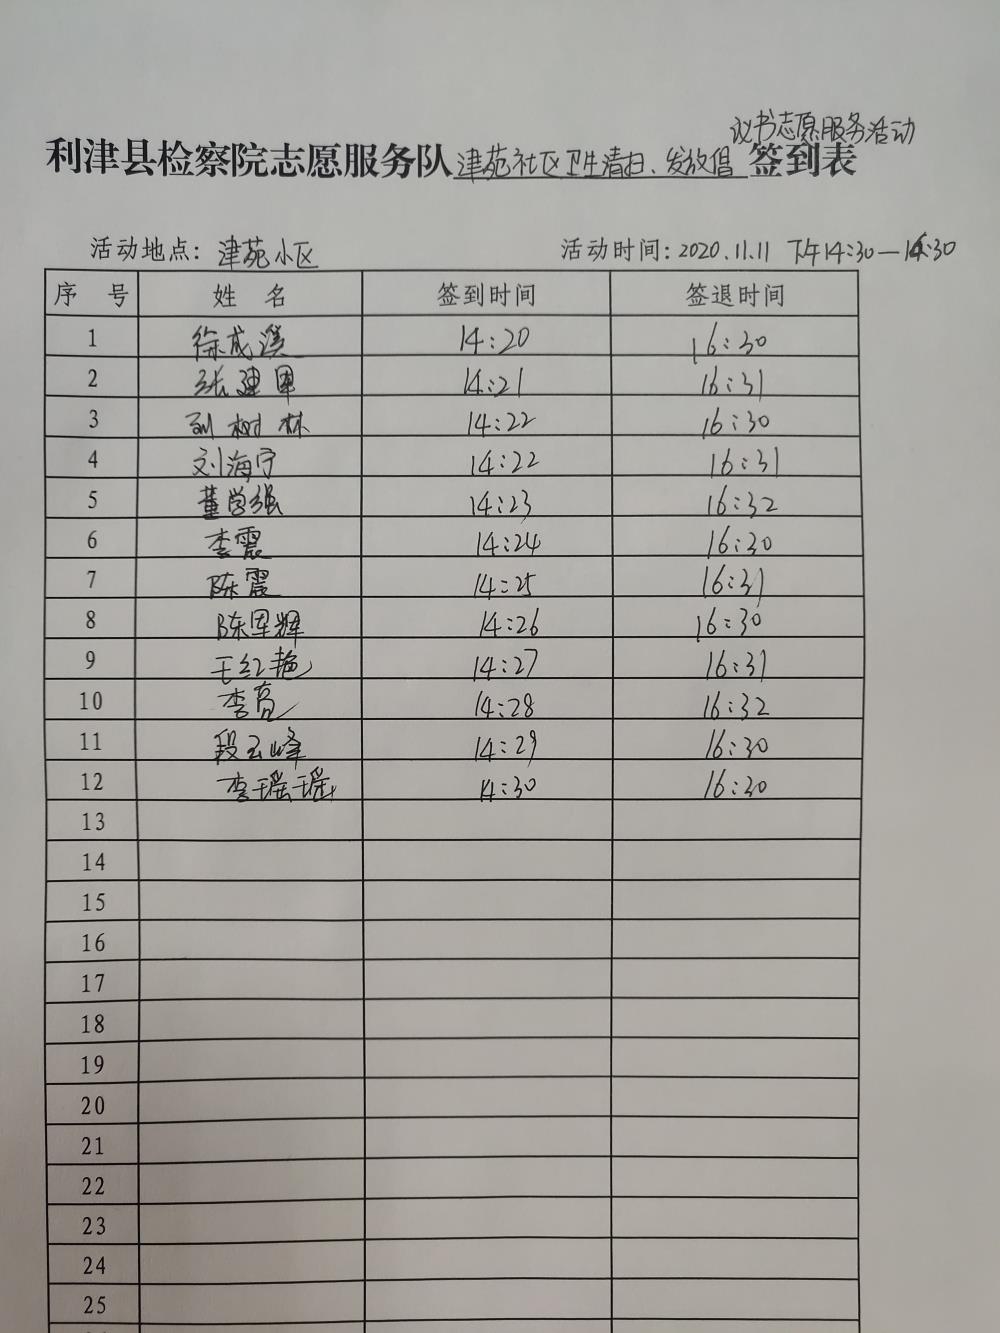 议书志愿服务活动
利津县检察院志愿服务队津苑社区卫生清扫、发放倡签到表
活动地点：津苑小区 活动时间：2020.11.11 下午14:30—16:30
序 号 姓 名 签到时间 签退时间
1 徐成溪 14:20 16:30
2 张建军 14:21 16:31
3 刘树林 14:22 16:30
4 刘海宁 14:22 16:31
5 董学强 14:23 16:32
6 李震 14:24 16:30
7 陈震 14:25 16:31
8 陈军辉 14:26 16:30
9 王红艳 14:27 16:31
10 李亮 14:28 16:32
11 段云峰 14:29 16:30
12 李瑶瑶 14:30 16:30
13
14
15
16
17
18
19
20
21
22
23
24
25